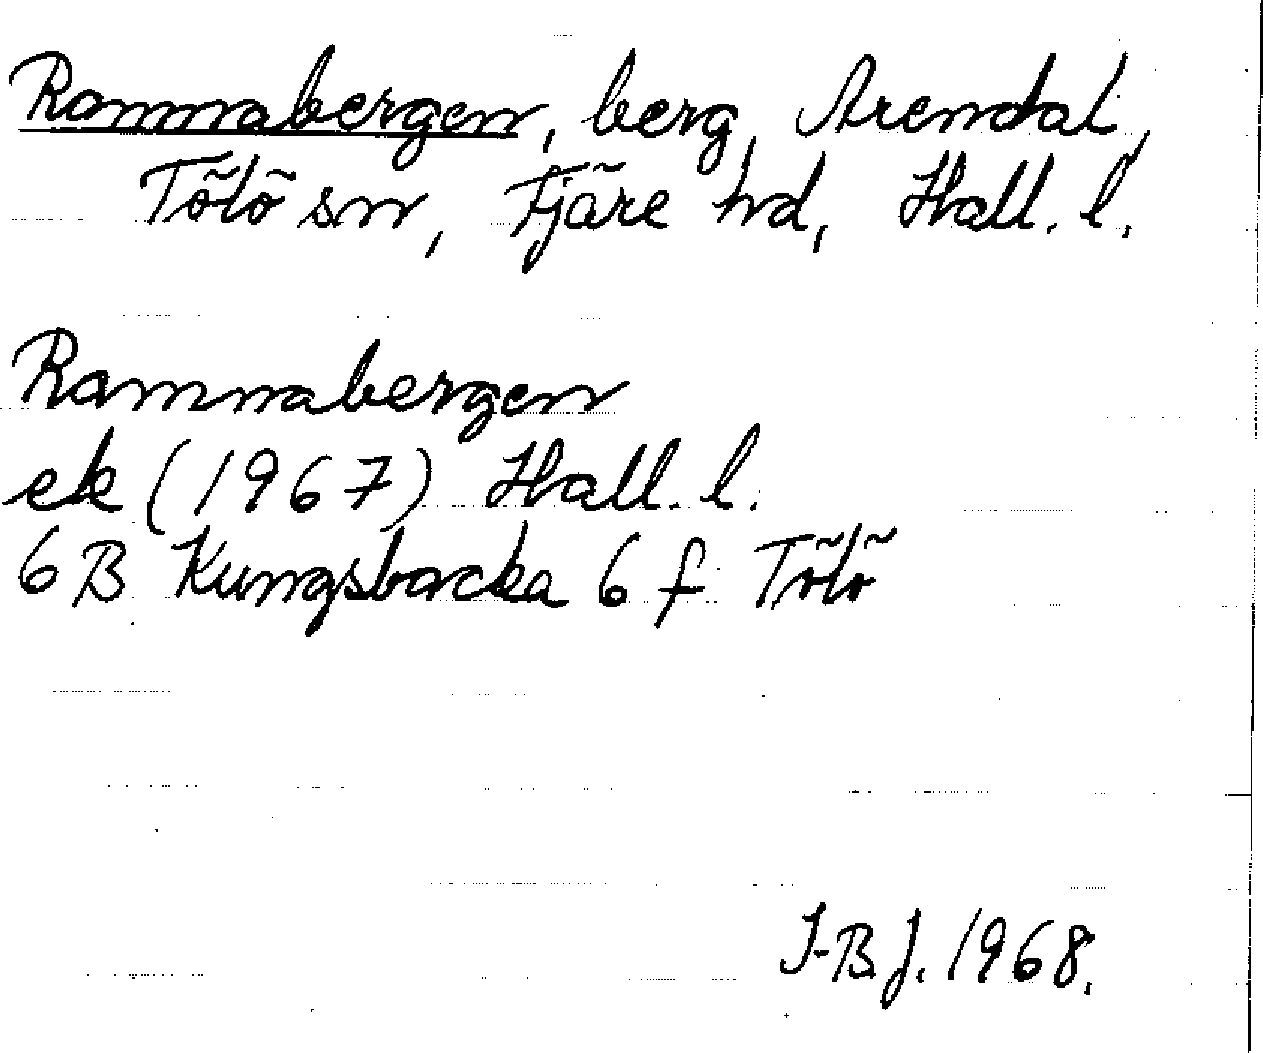 Ramnabergen, berg, Arendal,
Tölö sn, Fjäre hd, Hall. l.
Ramnabergen
ek (1967) Hall. l.
6 B Kungsbacka 6 f Tölö
I-B J. 1968.